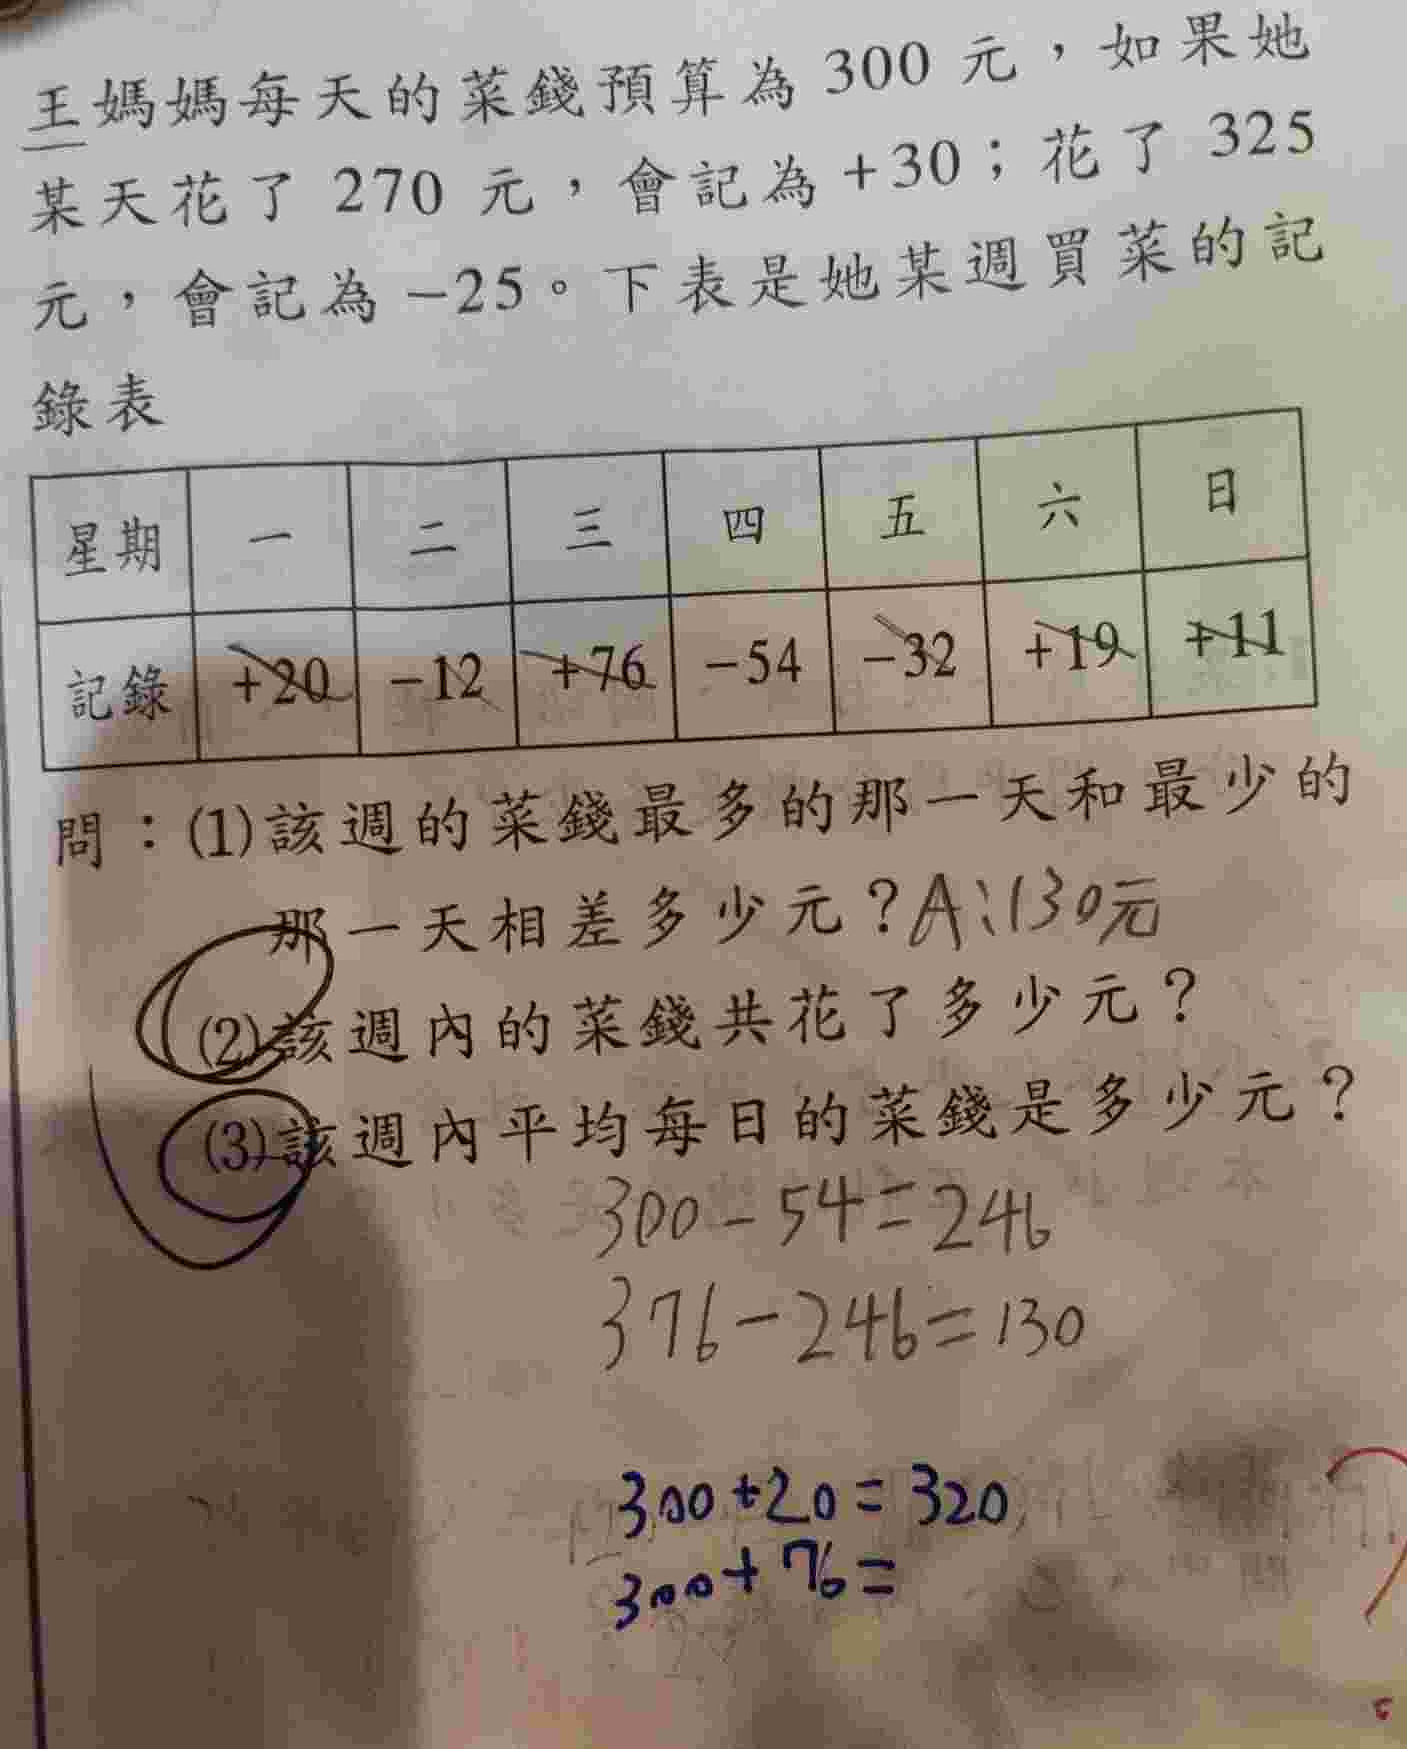 王媽媽每天的菜錢預算為 300 元，如果她
某天花了 270 元，會記為 +30；花了 325
元，會記為 -25。下表是她某週買菜的記
錄表
星期 一 二 三 四 五 六 日
記錄 +20 -12 +76 -54 -32 +19 +11
問：(1)該週的菜錢最多的那一天和最少的
那一天相差多少元？A:130元
(2)該週內的菜錢共花了多少元？
(3)該週內平均每日的菜錢是多少元？
300-54=246
376-246=130
300+20=320
300+76=